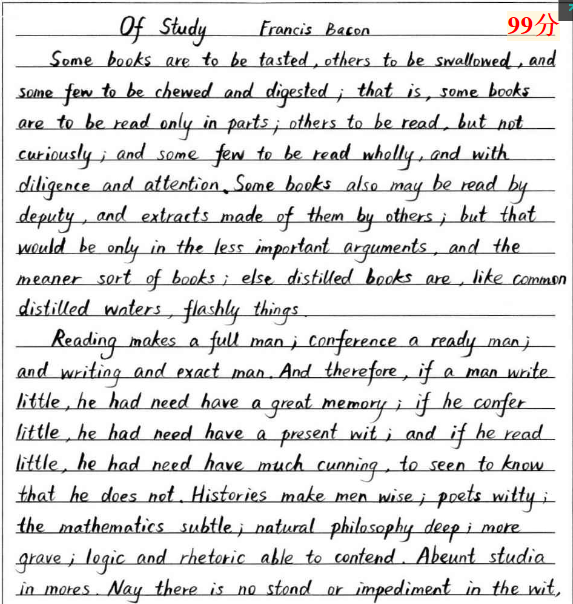 Of Study Francis Bacon 99分
Some books are to be tasted, others to be swallowed, and
some few to be chewed and digested; that is, some books
are to be read only in parts; others to be read, but not
curiously; and some few to be read wholly, and with
diligence and attention. Some books also may be read by
deputy, and extracts made of them by others; but that
would be only in the less important arguments, and the
meaner sort of books; else distilled books are, like common
distilled waters, flashly things.
Reading makes a full man; conference a ready man;
and writing and exact man. And therefore, if a man write
little, he had need have a great memory; if he confer
little, he had need have a present wit; and if he read
little, he had need have much cunning, to seen to know
that he does not. Histories make men wise; poets witty;
the mathematics subtle; natural philosophy deep; more
grave; logic and rhetoric able to contend. Abeunt studia
in mores. Nay there is no stond or impediment in the wit,